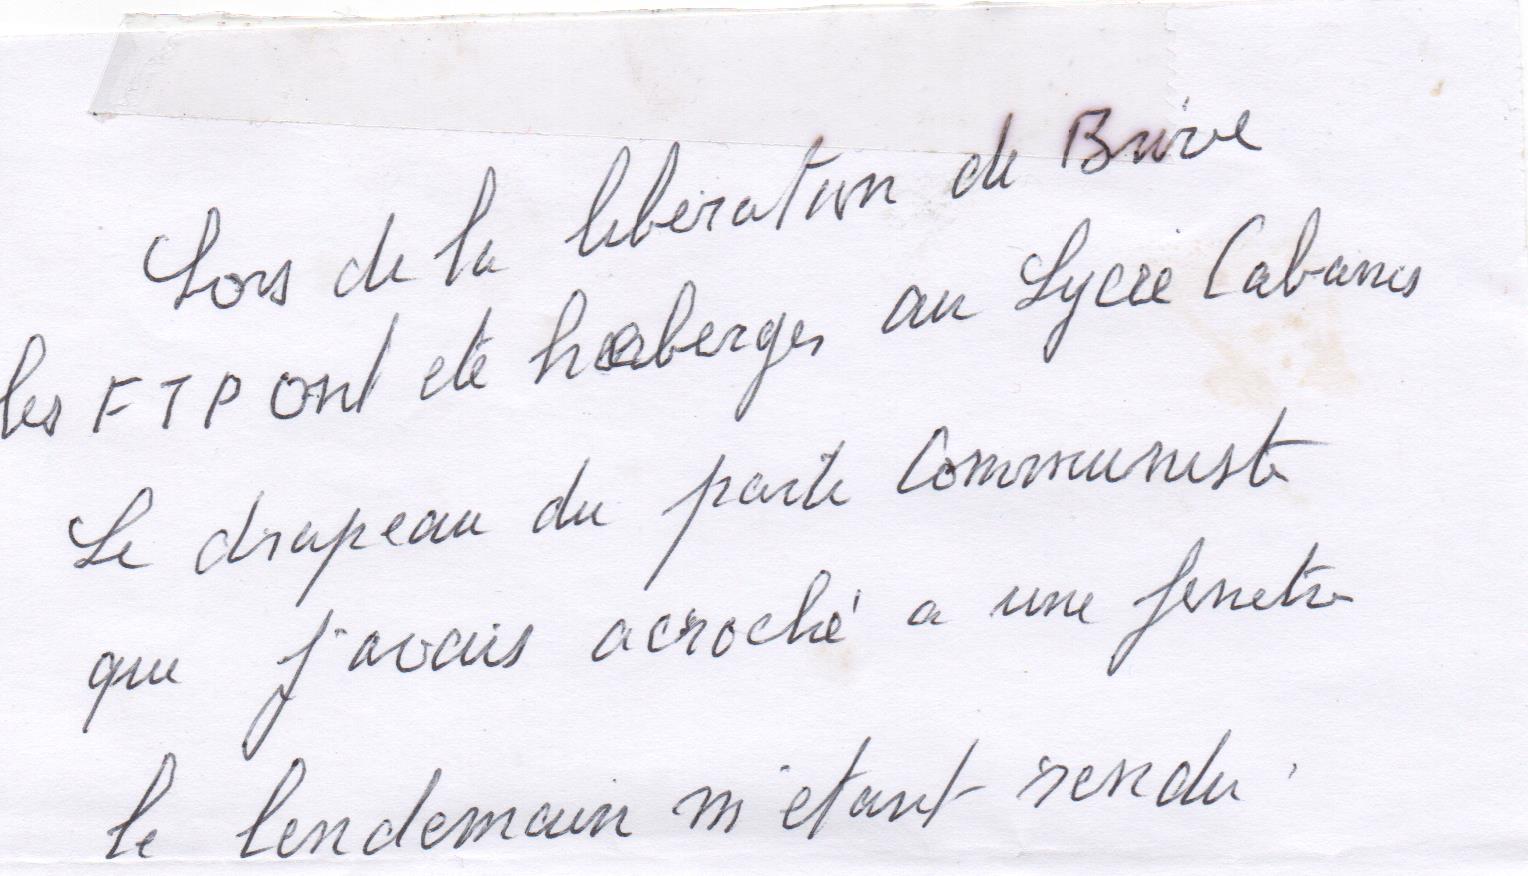 Lors de la libération de Brive
les FTP ont eté heberges au Lycée Cabanis
Le drapeau du parti Communiste
que j'avais acroché a une fenetre
le lendemain m'etant rendu